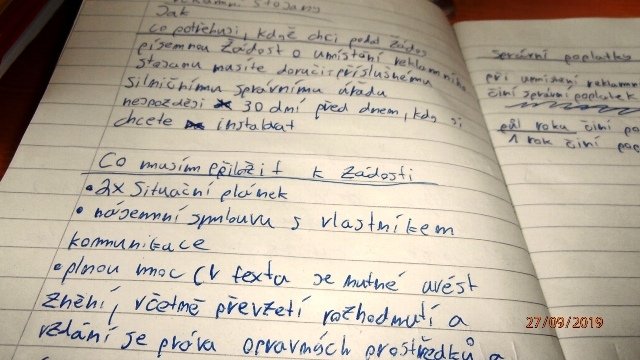 reklamní stojany
Jak
co potřebuji, když chci podat žádos
písemnou žádost o umístění reklamního
stojanu musíte doručit příslušnému
silničnímu správnímu úřadu
nejpozději 30 dní před dnem, kdy si
chcete instalovat
Co musím přiložit k žádosti
• 2x situační plánek
• nájemní smlouvu s vlastníkem
kommunikace
• plnou moc (v textu je nutné uvést
znění, včetně převzetí rozhodnutí a
vzdání se práva opravných prostředků a
správní poplatky
při umístění reklamn
činí správní poplatek
půl roku činí po
1 rok činí pop
27/09/2019